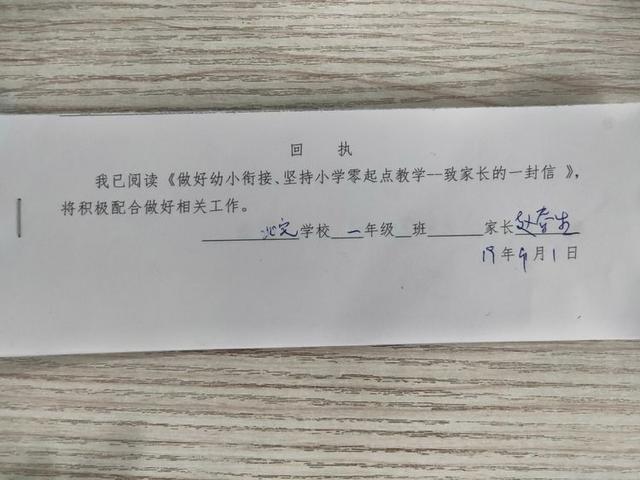 回 执
我已阅读《做好幼小衔接、坚持小学零起点教学--致家长的一封信》，
将积极配合做好相关工作。
学校一年级 班 家长
19年9月1日